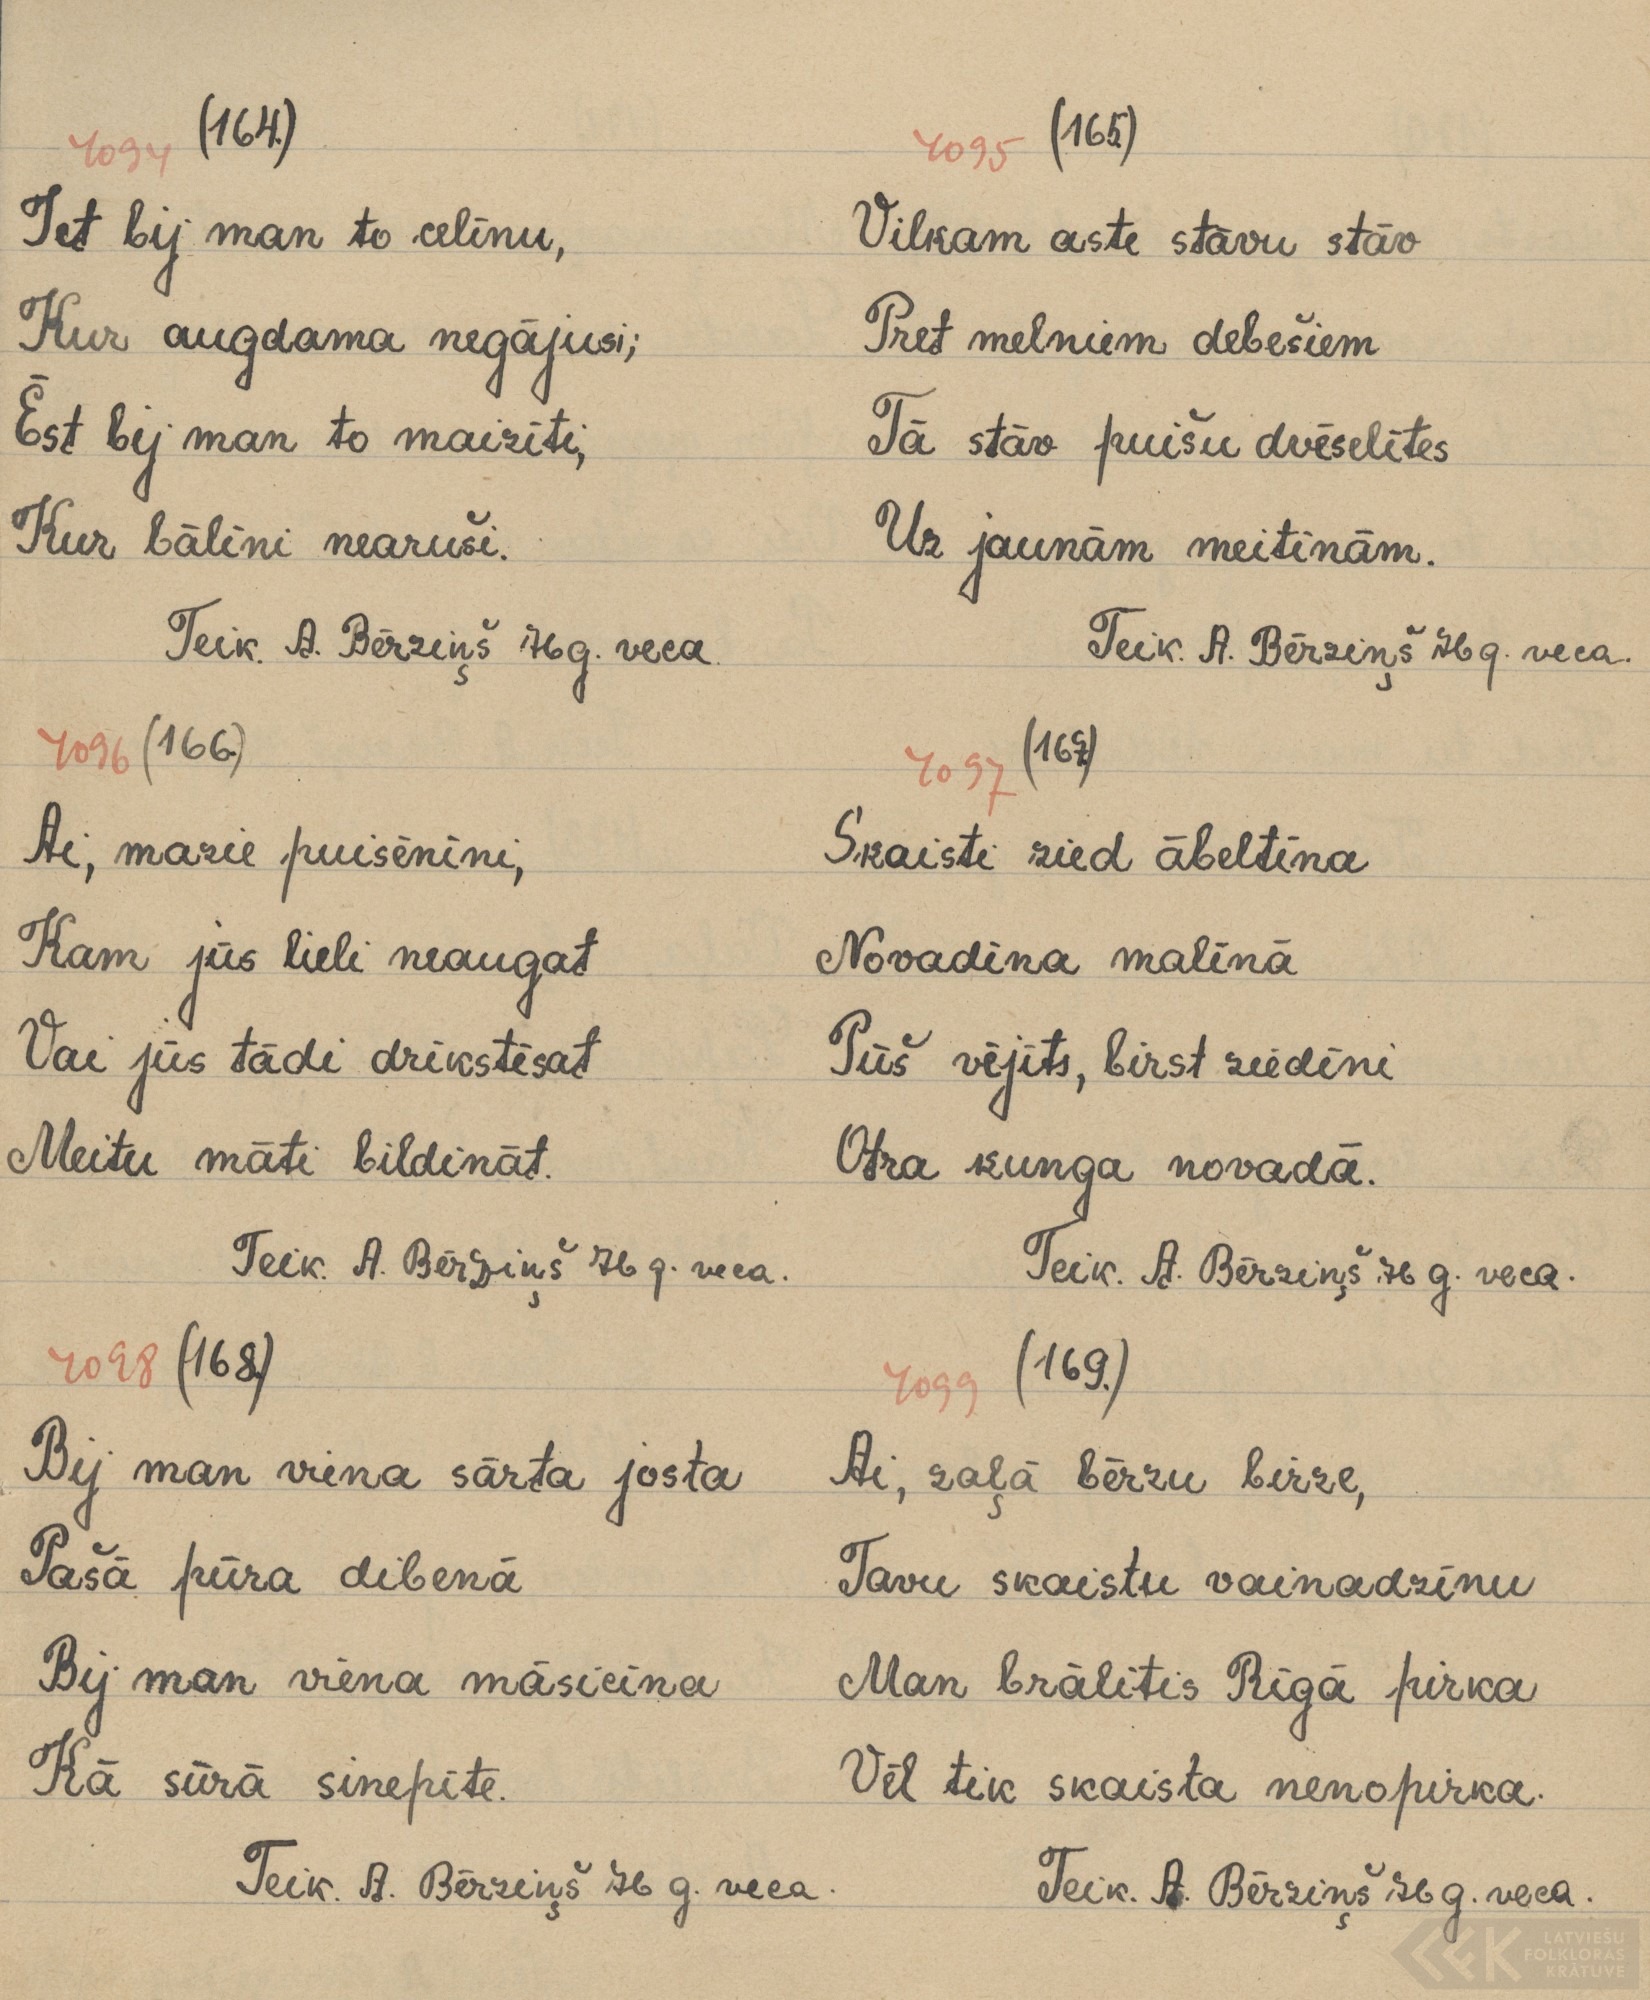 4094 (164.)
Iet bij man to celīnu,
Kur augdama negājusi;
Ēst bij man to maizīti,
Kur bālīni nearuši.
Teik. A. Bērziņš 76 g. veca.
4095 (165.)
Vilkam aste stāvu stāv
Pret melniem debešiem
Tā stāv puišu dvēselītes
Uz jaunām meitinām.
Teik. A. Bērziņš 76 g. veca.
4096 (166.)
Ai, mazie puisēnīni,
Kam jūs lieli neaugat
Vai jūs tādi drīkstēsat
Meitu māti bildināt.
Teik. A. Bērziņš 76 g. veca.
4097 (167.)
Skaisti zied ābeltīna
Novadīna malīnā
Pūš vējīts, birst ziedīni
Otra kunga novadā.
Teik. A. Bērziņš 76 g. veca.
4098 (168.)
Bij man viena sārta josta
Pašā pūra dibenā
Bij man viena māsicīna
Kā sūrā sinepītē.
Teik. A. Bērziņš 76 g. veca.
4099 (169.)
Ai, zaļā bērzu birze,
Tavu skaistu vainadzīnu
Man brālītis Rīgā pirka
Vēl tik skaista nenopirka.
Teik. A. Bērziņš 76 g. veca.
LATVIEŠU
FOLKLORAS
KRĀTUVE